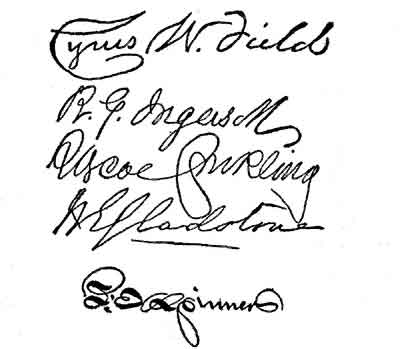 Cyrus W. Field
R. G. Ingersoll
Roscoe Conkling
W E Gladstone
F. E. Spinner